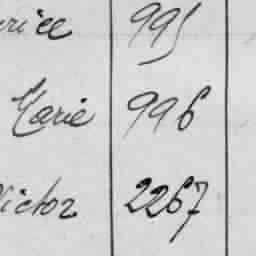 995
Marie 996
Victor 2267